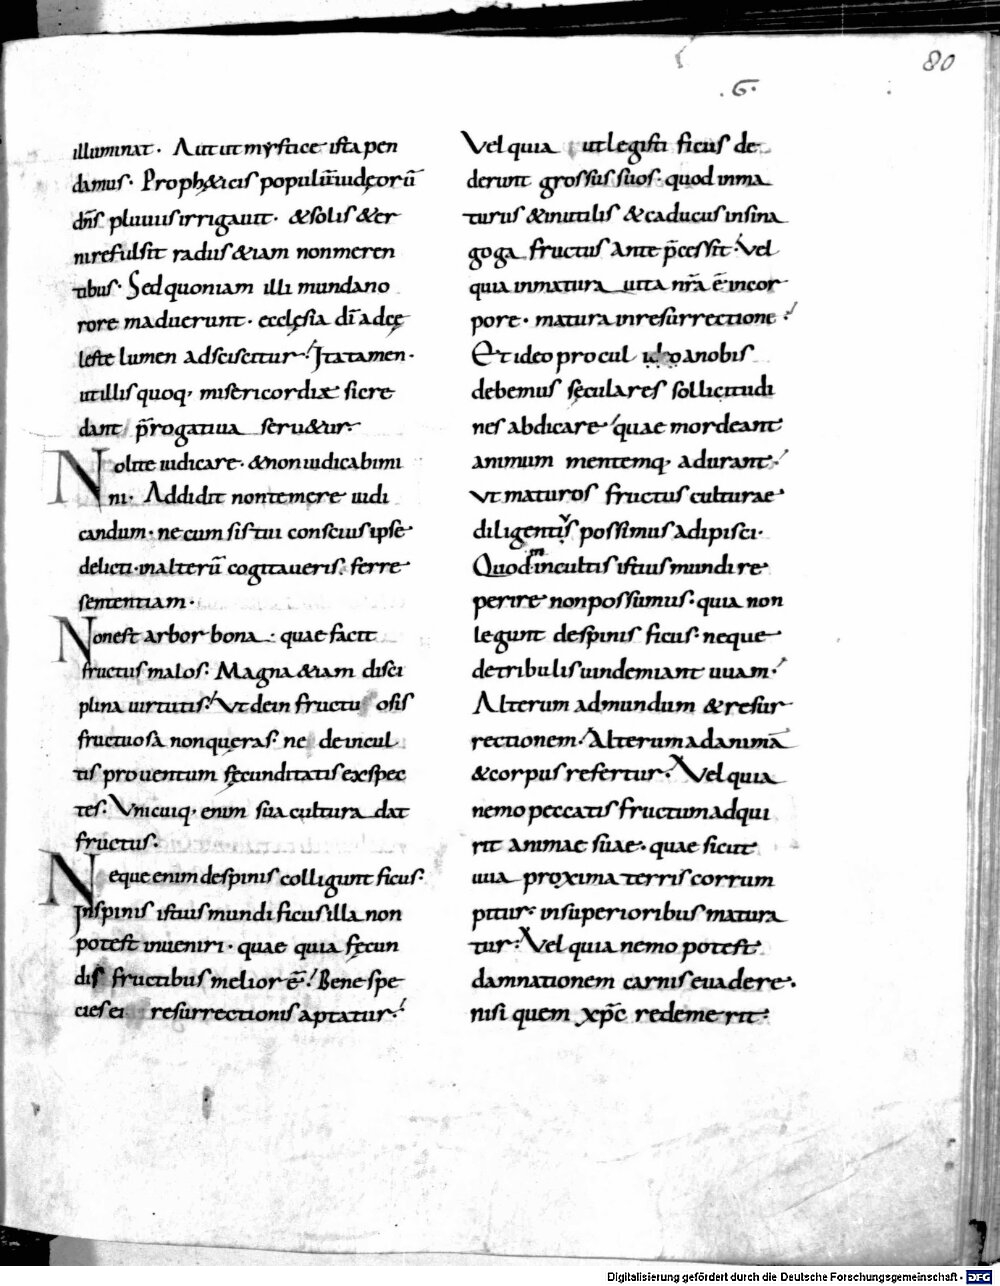 80
.G.
illuminat. Aut ut mystice ista pen
damus. Proph&icis populū iudęorū
dn̄s pluuiis irrigauit. & solis &er
ni refulsit radiis &iam non meren
tibus. Sed quoniam illi mundano
rore maduerunt. ecclęsia dī ad cę
leste lumen adsciscitur. Ita tamen.
ut illis quoq, misericordiæ si cre
dant p̄rogatiua seru&ur.
Nolite iudicare. & non iudicabimi
ni. Addidit non temere iudi
candum. ne cum sis tui conscius ipse
delicti. in alterū cogitaueris ferre
sententiam.
Non est arbor bona. quae facit
fructus malos. Magna &iam disci
plina uirtutis. Vt de in fructuosis
fructuosa non quęras. ne de incul
tis prouentum fęcunditatis exspec
tes. Vnicuiq, enim sua cultura dat
fructus.
Neque enim de spinis colligunt ficus.
In spinis istius mundi ficus illa non
potest inueniri. quae quia fęcun
dis fructibus melior ē. Bene spe
ciei ei resurrectionis aptatur.
Vel quia ut legisti ficus de
derunt grossus suos. quod inma
turus & inutilis & caducus in sina
goga fructus ante p̄cessit. Vel
quia inmatura uita nr̄a ē in cor
pore. matura in resurrectione.
Et ideo procul a nobis
debemus sęculares sollicitudi
nes abdicare quae mordeant
animum mentemq, adurant.
Vt maturos fructus culturae
diligentis possimus adipisci.
Quod in incultis istius mundi re
perire non possumus. quia non
legunt de spinis ficus. neque
de tribulis uindemiant uuam.
Alterum ad mundum & resur
rectionem. Alterum ad animā
& corpus refertur. Vel quia
nemo peccatis fructum adqui
rit animae suae. quae sicut
uua proxima terris corrum
pitur. in superioribus matura
tur. Vel quia nemo potest
damnationem carnis euadere.
nisi quem xp̄c redemerit.
Digitalisierung gefördert durch die Deutsche Forschungsgemeinschaft - DFG